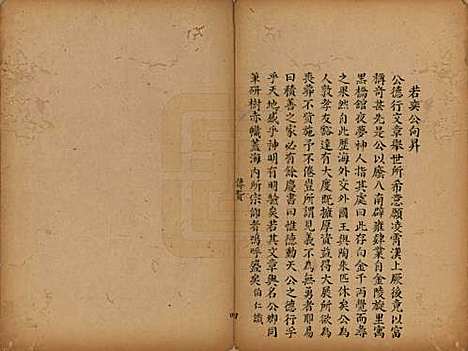 若奕公向昇
公德行文章舉世所希意願凌霄漢上厥後竟以富
稱奇甚先是公以廩八南辟雍肄業自金陵旋里寓
黑橋館夜夢神人指其處曰此存向金千丙覺而尋
之果然自此歷海外交外國王與陶朱匹休矣公為
人敦孝友豁達有大度既擁厚資益得大展所欲為
喪葬不貲施予不倦豈所謂見義不為無勇者耶易
曰積善之家必有餘慶書曰惟德動天公之德行乎
乎天地感乎神明有明驗矣若其文章與名公卿同
筆研樹赤幟蓋海內所宗仰者嗚呼盛矣伯仁識
傳贊
四